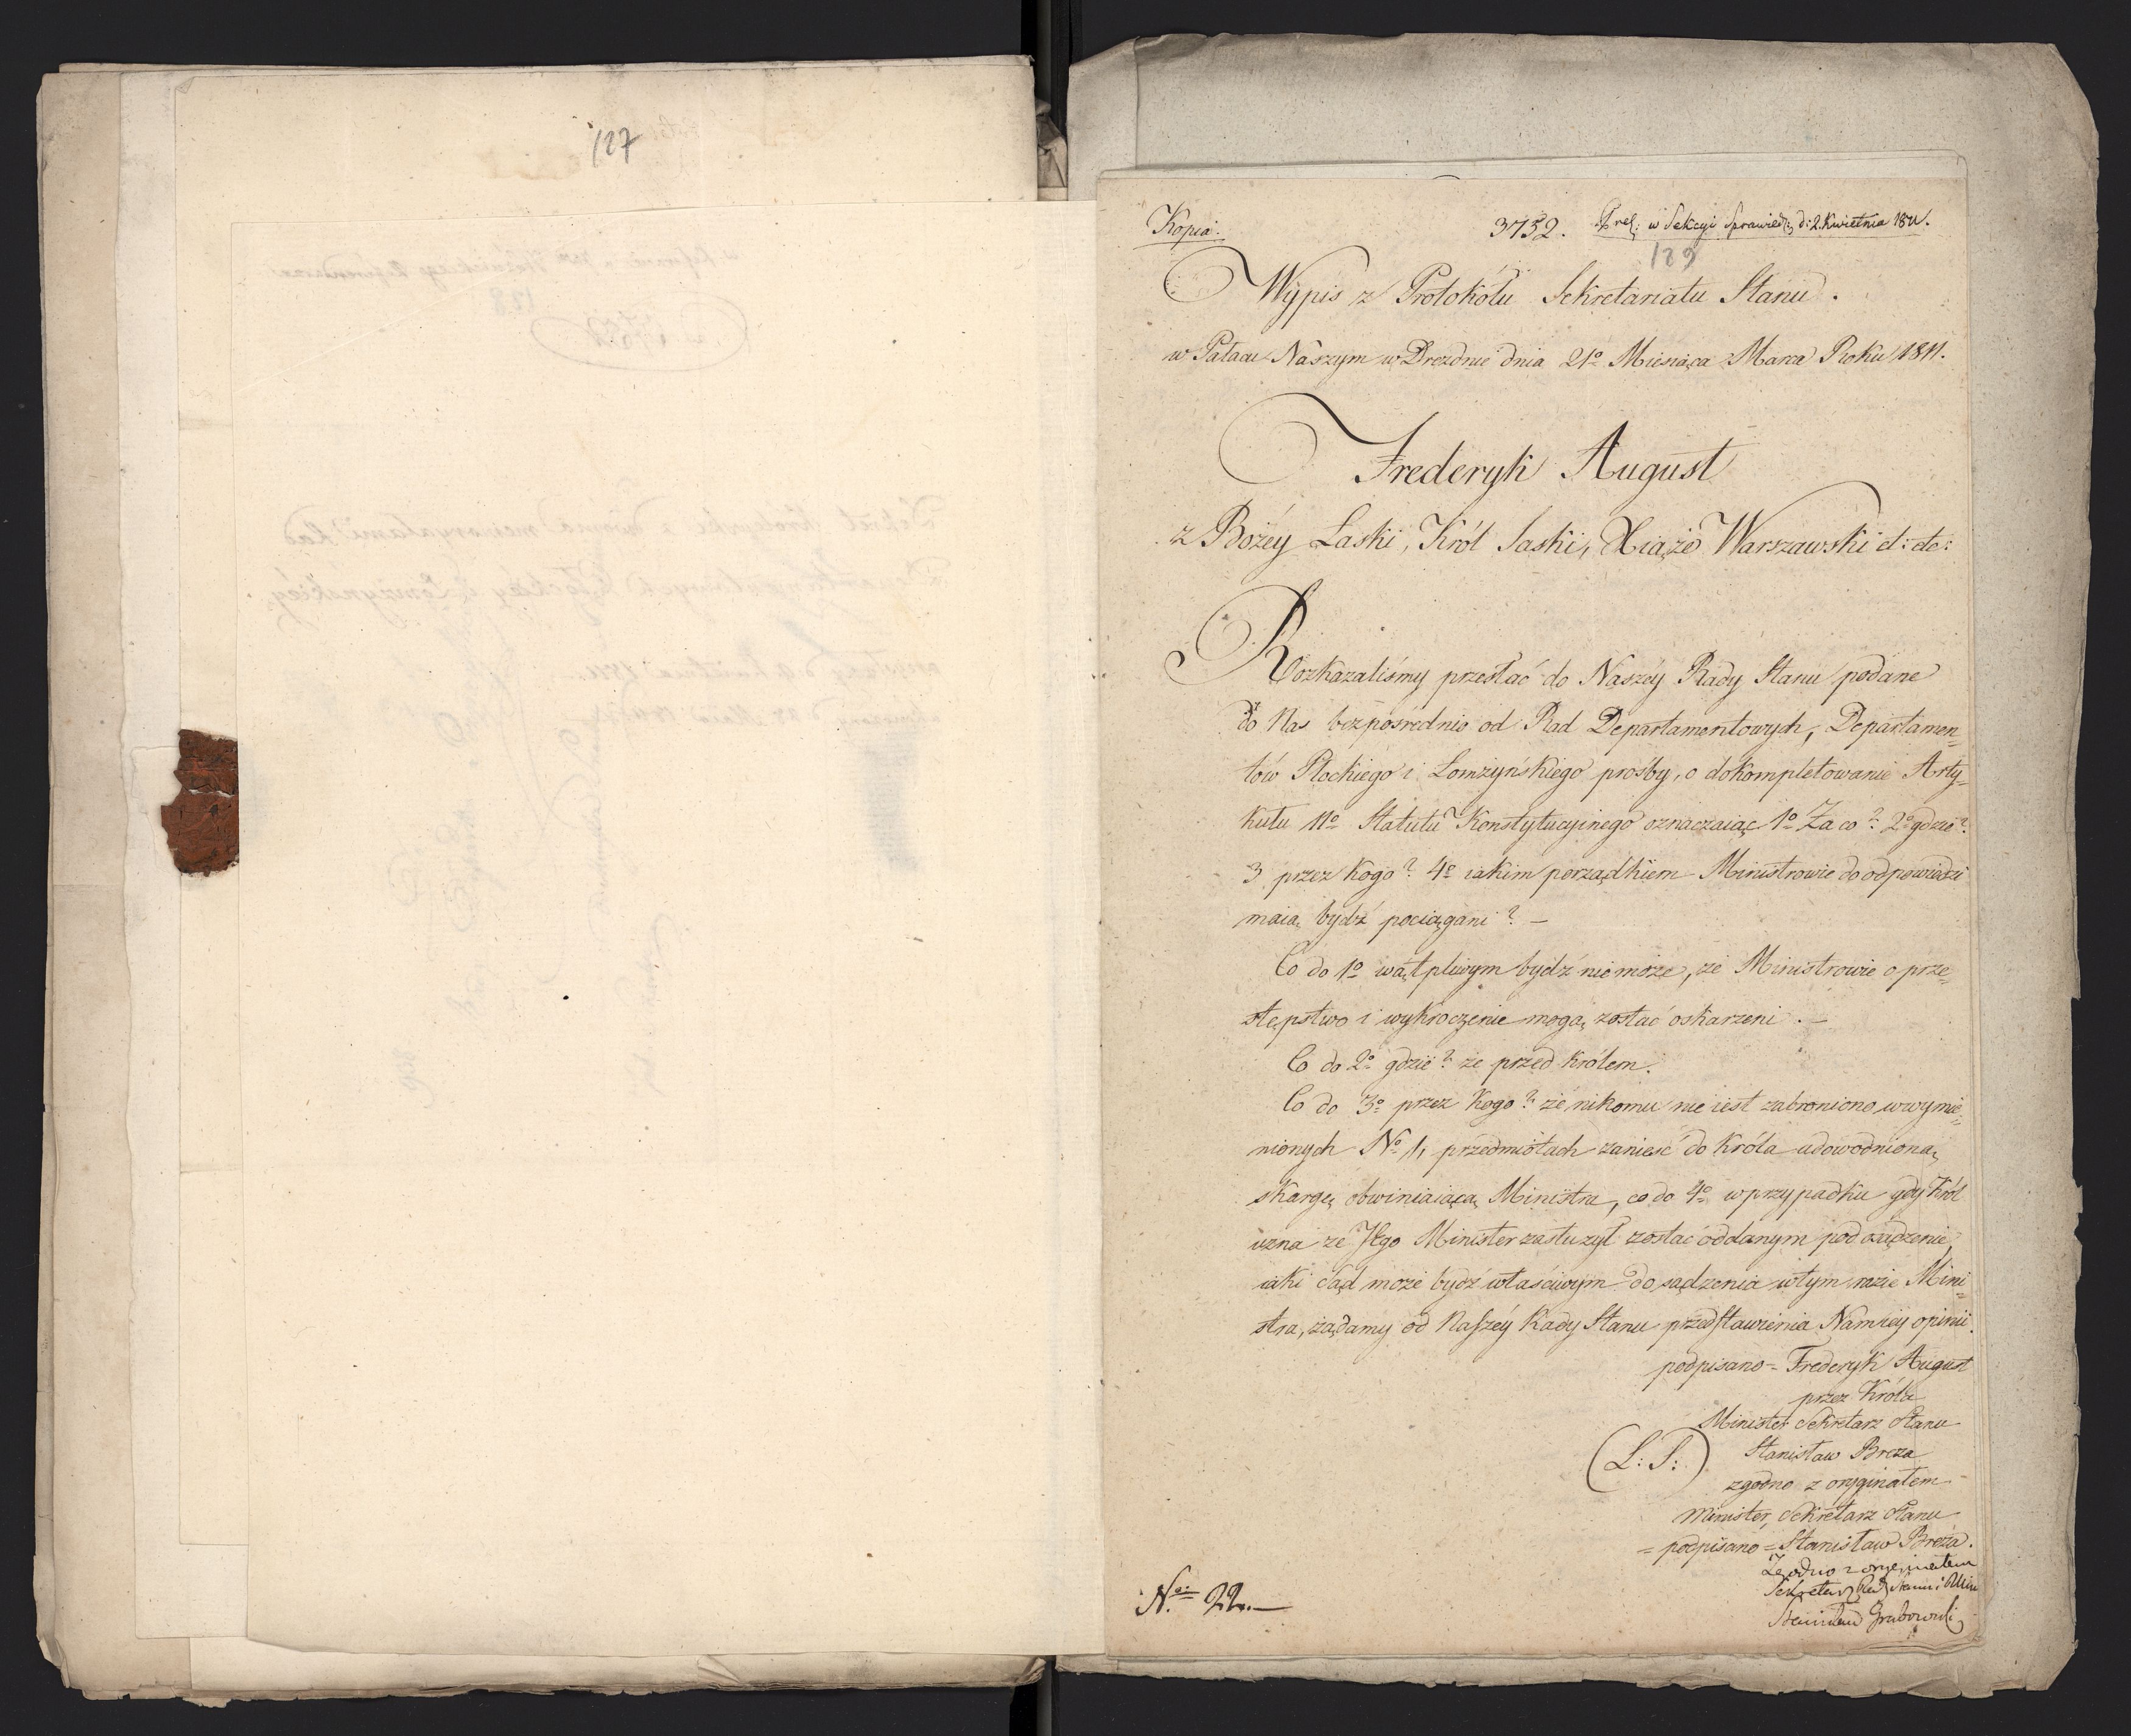 127
Kopia.
3752. Prel: w Sekcyi Sprawiedl: d: 2. Kwietnia 1811.
189
Wypis z Protokółu Sekretariatu Stanu.
w Pałacu Naszym w Dreznie dnia 21º Miesiąca Marca Roku 1811.
Frederyk August
z Bożéy Łaski, Król Saski, Xiąże Warszawski &: &c:
Rozkazaliśmy przesłać do Naszéy Rady Stanu podane
do Nas bezpośrednio od Rad Departamentowych, Departamen=
tów Płockiego i Łomżyńskiego prośby, o dokompletowanie Arty=
kułu 11º Statutu Konstytucyinego oznaczaiąc 1º Za co? 2º gdzie?
3 przez kogo? 4º iakim porządkiem Ministrowie do odpowiedzi
maią bydź pociągani? –
Co do 1º wątpliwym bydź nie może, że Ministrowie o prze=
stępstwo i wykroczenie mogą zostać oskarżeni. –
Co do 2º gdzie? że przed Królem.
Co do 3º przez Kogo? że nikomu nie iest zabroniono, w wymie=
nionych Nº 1, przedmiotach zanieść do Króla udowodnioną
skargę obwiniaiącą Ministra, co do 4º w przypadku gdy Król
uzna że Jego Minister zasłużył zostać oddanym pod osądzenie,
iaki sąd może bydź właściwym do sądzenia w tym razie Mini=
stra, żądamy od Naszéy Rady Stanu przedstawienia Nam iey opinii.
podpisano = Frederyk August
przez Króla
Minister Sekretarz Stanu
(L: S:) Stanisław Breza
zgodno z oryginałem
Minister Sekretarz Stanu
= podpisano = Stanisław Breza.
Zgodno z oryginałem
Sekretarz Rady Stanu i Min
Stanisław Grabowski
No: 22. –